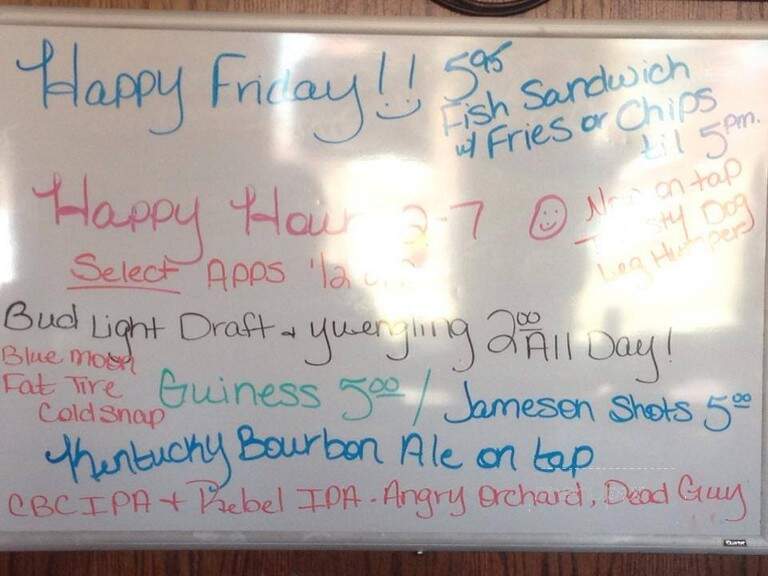 Happy Friday!!
5.95
Fish Sandwich
w/ Fries or Chips
til 5pm.
Happy Hour 2-7
Now on tap
Thirsty Dog
Leg Humper
Select APPS 1/2
Bud Light Draft + yuengling 2.00 All Day!
Blue Moon
Fat Tire
Cold Snap
Guiness 5.00 / Jameson Shots 5.00
Kentucky Bourbon Ale on tap
CBC IPA + Rebel IPA - Angry Orchard, Dead Guy